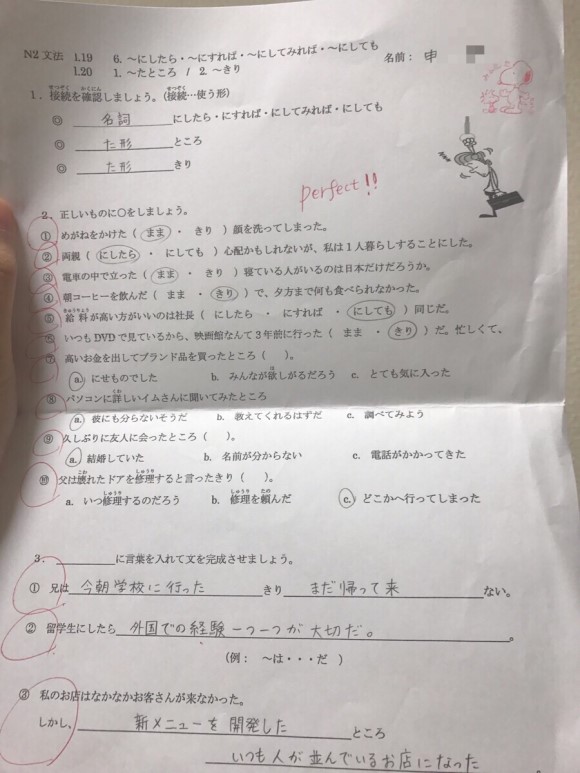 N2文法 1.19 6. ～にしたら・～にすれば・～にしてみれば・～にしても 名前：申
1.20 1. ～たところ / 2. ～きり
1．接続を確認しましょう。（接続…使う形）
◎ 名詞 にしたら・にすれば・にしてみれば・にしても
◎ た形 ところ
◎ た形 きり
perfect!!
2．正しいものに○をしましょう。
① めがねをかけた（ まま ・ きり ）顔を洗ってしまった。
② 両親（ にしたら ・ にしても ）心配かもしれないが、私は1人暮らしすることにした。
③ 電車の中で立った（ まま ・ きり ）寝ている人がいるのは日本だけだろうか。
④ 朝コーヒーを飲んだ（ まま ・ きり ）で、夕方まで何も食べられなかった。
⑤ 給料が高い方がいいのは社長（ にしたら ・ にすれば ・ にしても ）同じだ。
⑥ いつもDVDで見ているから、映画館なんて3年前に行った（ まま ・ きり ）だ。忙しくて、
⑦ 高いお金を出してブランド品を買ったところ（ ）。
a. にせものでした b. みんなが欲しがるだろう c. とても気に入った
⑧ パソコンに詳しいイムさんに聞いてみたところ
a. 彼にも分らないそうだ b. 教えてくれるはずだ c. 調べてみよう
⑨ 久しぶりに友人に会ったところ（ ）。
a. 結婚していた b. 名前が分からない c. 電話がかかってきた
⑩ 父は壊れたドアを修理すると言ったきり（ ）。
a. いつ修理するのだろう b. 修理を頼んだ c. どこかへ行ってしまった
3．に言葉を入れて文を完成させましょう。
① 兄は 今朝学校に行った きり まだ帰って来 ない。
② 留学生にしたら 外国での経験一つ一つが大切だ。 。
（例： ～は・・・だ ）
③ 私のお店はなかなかお客さんが来なかった。
しかし、 新メニューを開発した ところ
いつも人が並んでいるお店になった